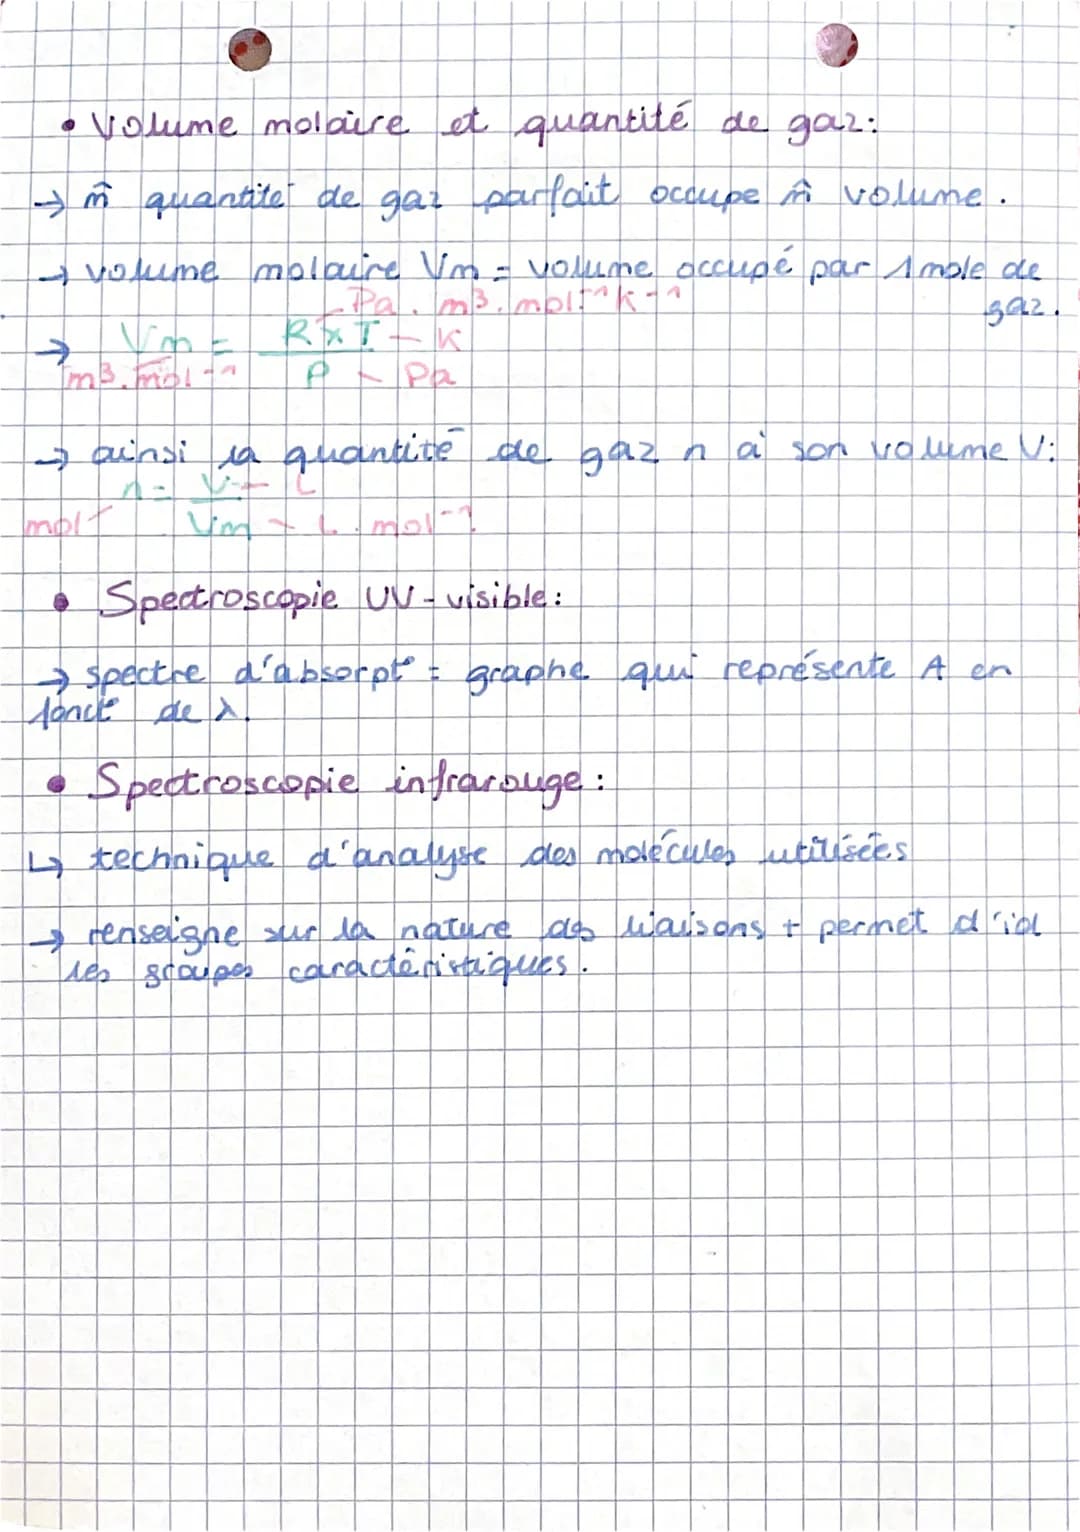 • Volume molaire et quantité de gaz:
→ m̂ quantité de gaz parfait occupe m̂ volume.
→ volume molaire Vm = volume occupé par 1 mole de
gaz.
Pa. m³. mol⁻¹ K⁻¹
→ Vm = R×T - K
m³.mol⁻¹ P - Pa
→ ainsi la quantité de gaz n à son volume V:
n = V - L
mol Vm - L. mol⁻¹
• Spectroscopie UV-visible:
→ spectre d'absorptᵒ = graphe qui représente A en
fonctᵒ de λ.
• Spectroscopie infrarouge:
↳ technique d'analyse des molécules utilisées
→ renseigne sur la nature des liaisons + permet d'id
les groupes caractéristiques.